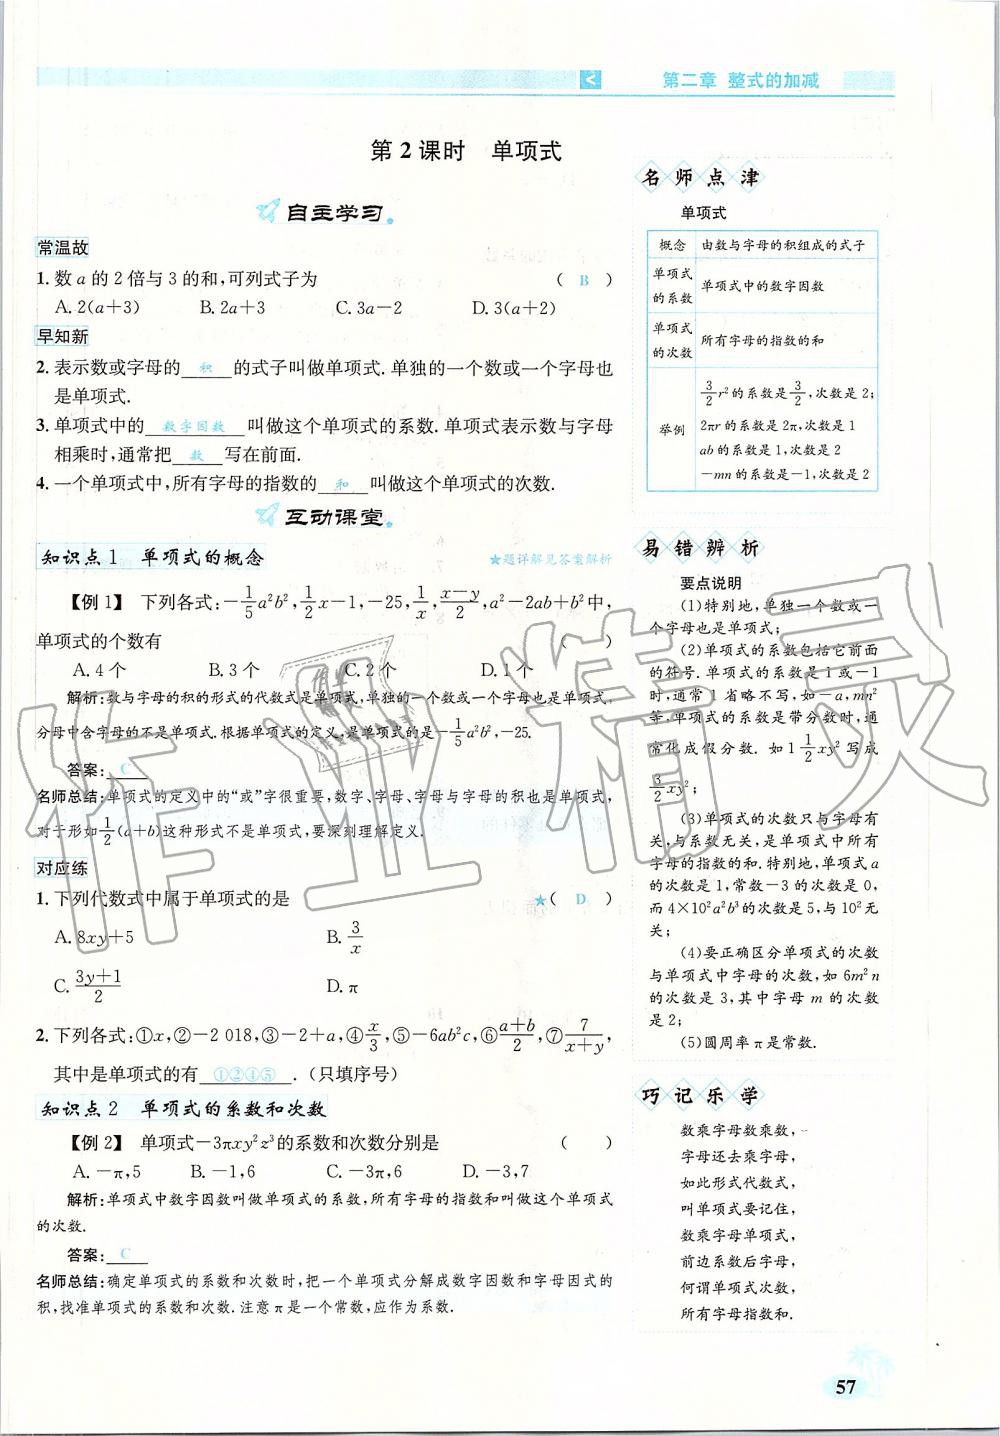 第二章 整式的加减
第2课时 单项式
自主学习
常温故
1. 数 a 的 2 倍与 3 的和,可列式子为 ( B )
A. 2(a+3) B. 2a+3 C. 3a-2 D. 3(a+2)
早知新
2. 表示数或字母的 积 的式子叫做单项式. 单独的一个数或一个字母也
是单项式.
3. 单项式中的 数字因数 叫做这个单项式的系数. 单项式表示数与字母
相乘时,通常把 数 写在前面.
4. 一个单项式中,所有字母的指数的 和 叫做这个单项式的次数.
互动课堂
知识点1 单项式的概念 ★题详解见答案解析
【例1】 下列各式:-1/5a²b²,1/2x-1,-25,1/x,(x-y)/2,a²-2ab+b²中,
单项式的个数有 ( )
A. 4 个 B. 3 个 C. 2 个 D. 1 个
解析:数与字母的积的形式的代数式是单项式,单独的一个数或一个字母也是单项式,
分母中含字母的不是单项式. 根据单项式的定义,是单项式的是-1/5a²b²,-25.
答案: C
名师总结:单项式的定义中的“或”字很重要,数字、字母、字母与字母的积也是单项式,
对于形如1/2(a+b)这种形式不是单项式,要深刻理解定义.
对应练
1. 下列代数式中属于单项式的是 ★( D )
A. 8xy+5 B. 3/x
C. (3y+1)/2 D. π
2. 下列各式:①x,②-2 018,③-2+a,④x/3,⑤-6ab²c,⑥(a+b)/2,⑦7/(x+y),
其中是单项式的有 ①②④⑤ .(只填序号)
知识点2 单项式的系数和次数
【例2】 单项式-3πxy²z³的系数和次数分别是 ( )
A. -π,5 B. -1,6 C. -3π,6 D. -3,7
解析:单项式中数字因数叫做单项式的系数,所有字母的指数和叫做这个单项式
的次数.
答案: C
名师总结:确定单项式的系数和次数时,把一个单项式分解成数字因数和字母因式的
积,找准单项式的系数和次数. 注意 π 是一个常数,应作为系数.
名师点津
单项式
概念 由数与字母的积组成的式子
单项式
的系数 单项式中的数字因数
单项式
的次数 所有字母的指数的和
举例 3/2r²的系数是3/2,次数是 2;
2πr 的系数是 2π,次数是 1
ab 的系数是 1,次数是 2
-mn 的系数是-1,次数是 2
易错辨析
要点说明
(1)特别地,单独一个数或一
个字母也是单项式;
(2)单项式的系数包括它前面
的符号. 单项式的系数是 1 或-1
时,通常 1 省略不写,如-a,mn²
等,单项式的系数是带分数时,通
常化成假分数. 如 1 1/2xy² 写成
3/2xy²;
(3)单项式的次数只与字母有
关,与系数无关,是单项式中所有
字母的指数的和. 特别地,单项式 a
的次数是 1,常数-3 的次数是 0,
而 4×10²a²b³ 的次数是 5,与 10² 无
关;
(4)要正确区分单项式的次数
与单项式中字母的次数,如 6m²n
的次数是 3,其中字母 m 的次数
是 2;
(5)圆周率 π 是常数.
巧记乐学
数乘字母数乘数,
字母还去乘字母,
如此形式代数式,
叫单项式要记住,
数乘字母单项式,
前边系数后字母,
何谓单项式次数,
所有字母指数和.
57
作业精灵